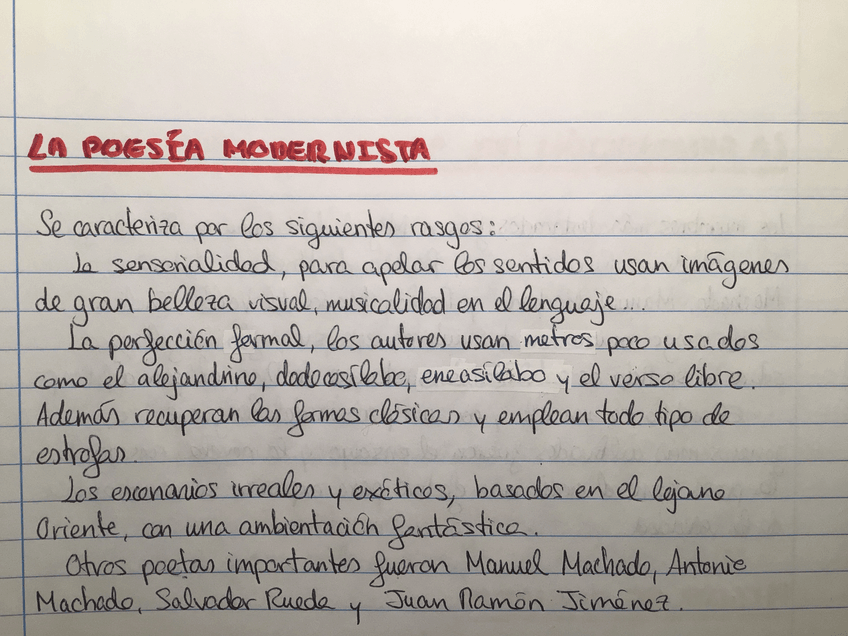 LA POESÍA MODERNISTA
Se caracteriza por los siguientes rasgos:
La sensorialidad, para apelar los sentidos usan imágenes
de gran belleza visual, musicalidad en el lenguaje...
La perfección formal, los autores usan metros poco usados
como el alejandrino, dodecasílabo, eneasílabo y el verso libre.
Además recuperan las formas clásicas y emplean todo tipo de
estrofas.
Los escenarios irreales y exóticos, basados en el lejano
Oriente, con una ambientación fantástica.
Otros poetas importantes fueron Manuel Machado, Antonio
Machado, Salvador Rueda y Juan Ramón Jiménez.